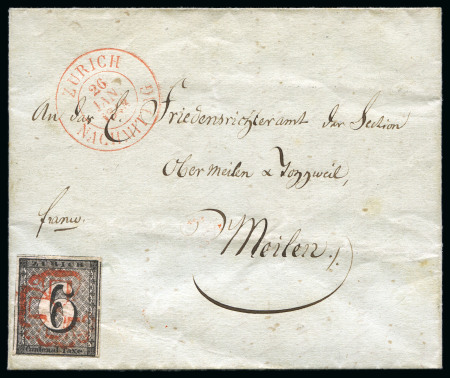 ZÜRICH
26
JAN
NACHMITTAG
An das E. Friedensrichteramt der Section
Obermeilen & Toggweil,
franco.
Meilen
ZURICH
6
Cantonal-Taxe